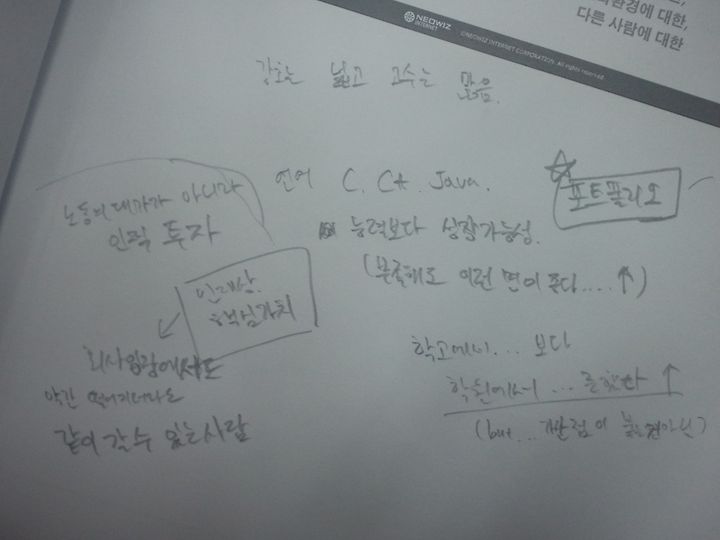 화환경에 대한,
다른 사람에 대한
NEOWIZ
INTERNET
©NEOWIZ INTERNET CORPORATION. All rights reserved
강호는 넓고 고수는 많음.
노동의 대가가 아니라
인적 투자
언어 C, C#, Java.
포트폴리오
능력보다 성장가능성.
(부족해도 이런 면이 좋다....↑)
인재상.
핵심가치
회사입장에서도
약간 떨어지더라도
같이 갈 수 있는 사람
학교에서... 보다
학원에서 ... ↑
(but...